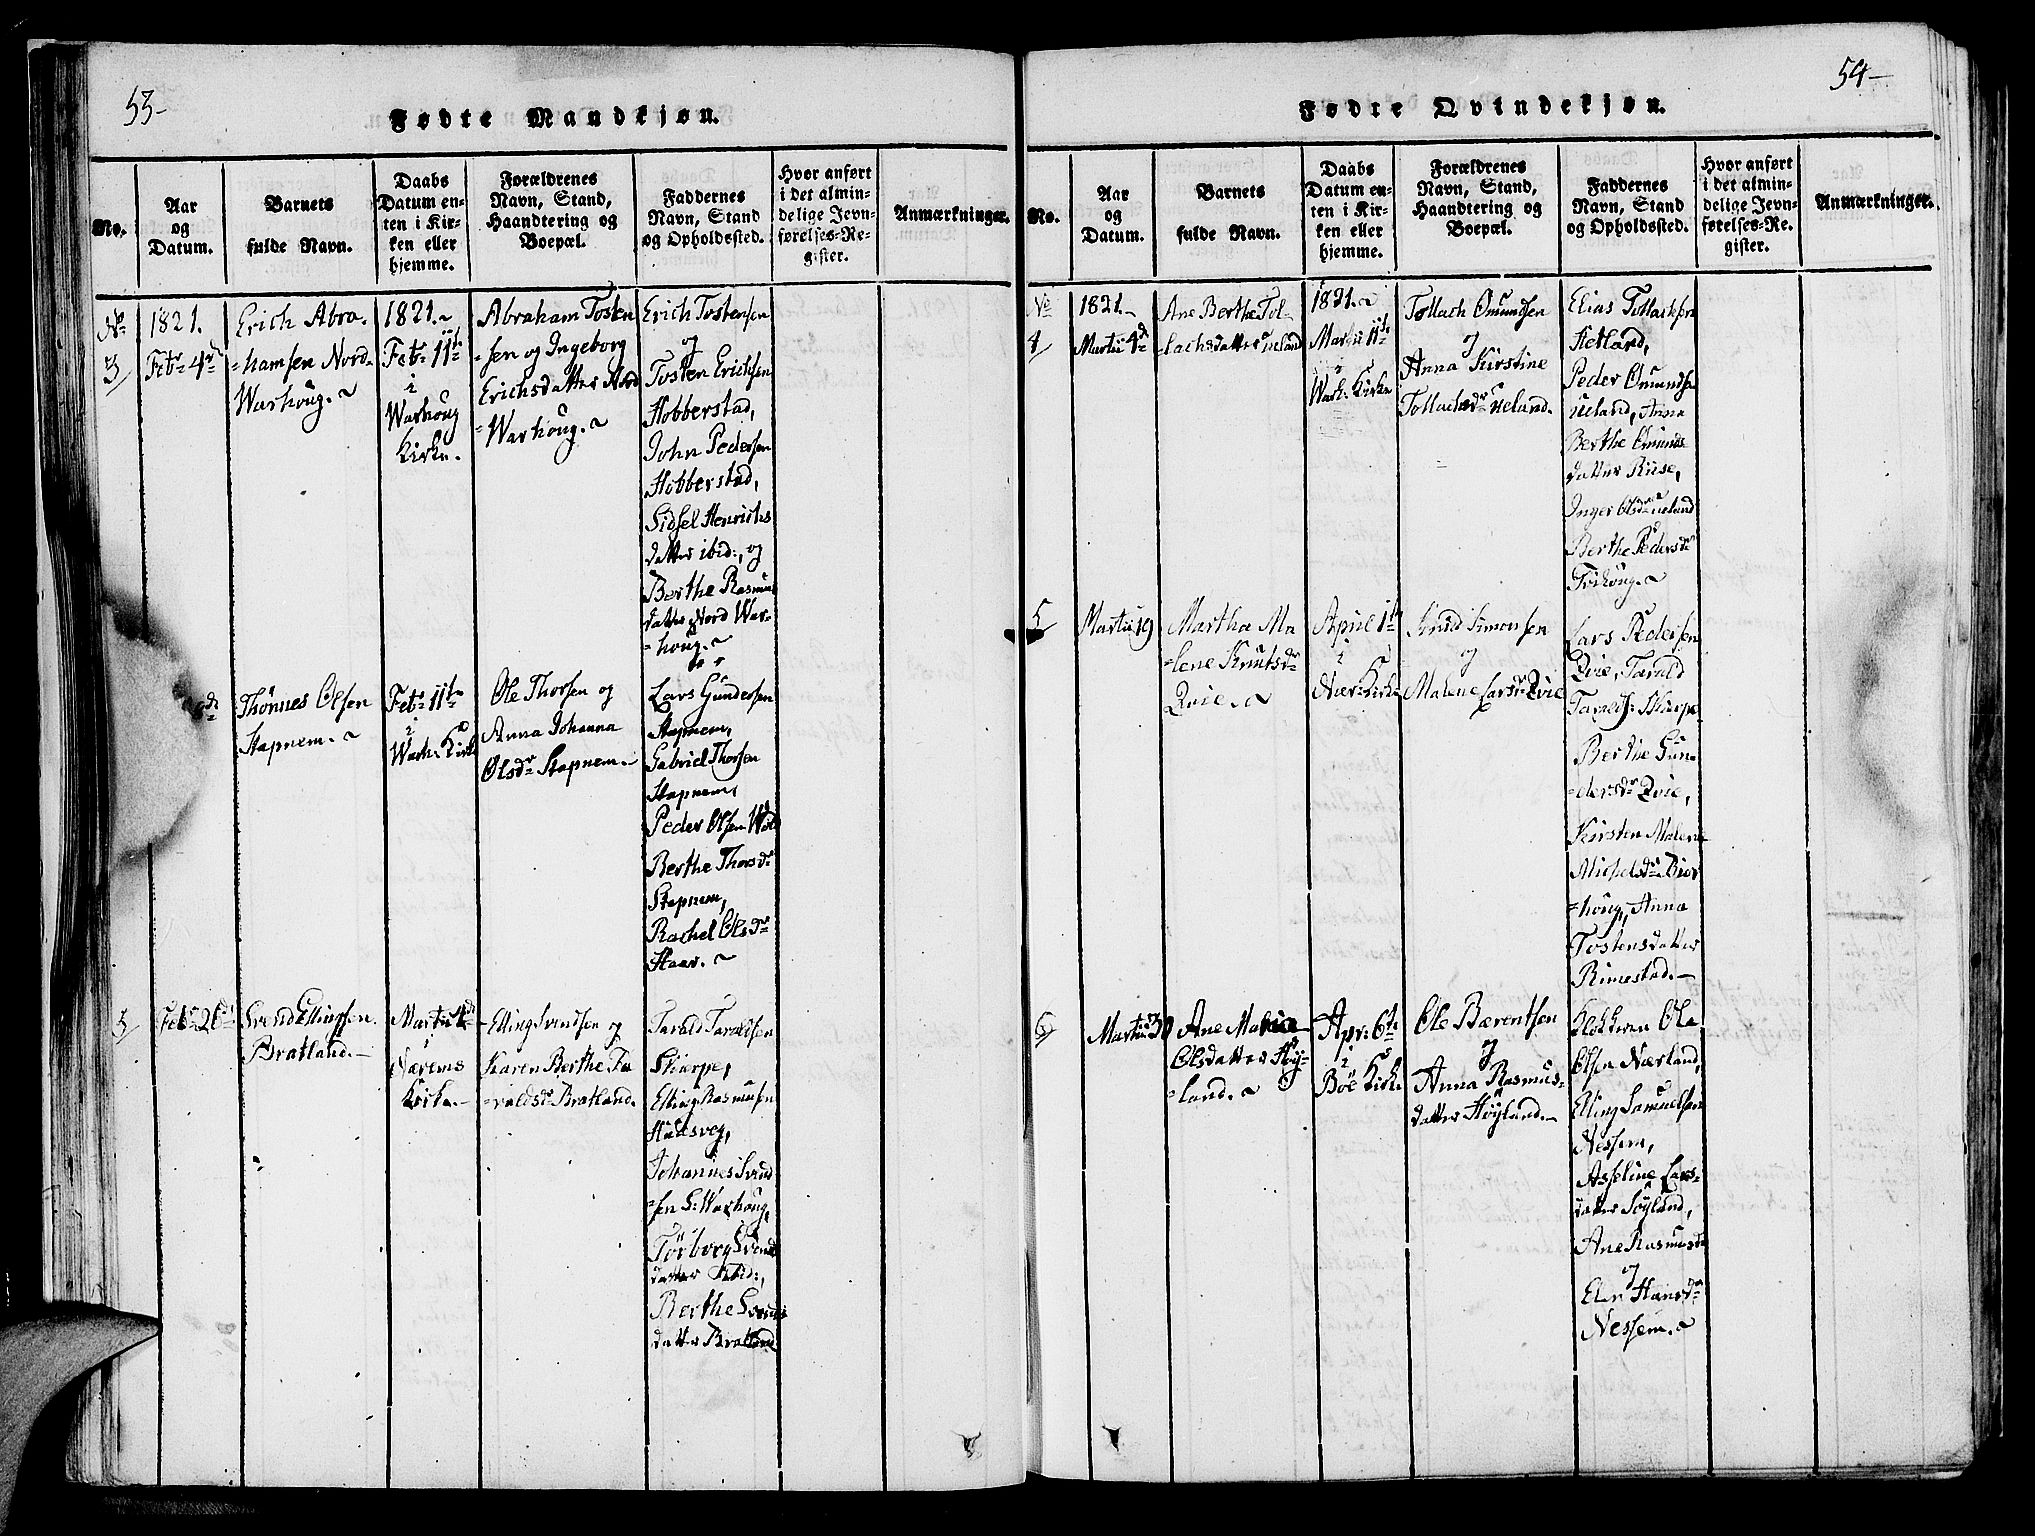 53-
Fødte Mandkjøn.
No.
Aar
og
Datum.
Barnets
fulde Navn.
Daabs
Datum en-
ten i Kir-
ken eller
hjemme.
Forældrenes
Navn, Stand,
Haandtering og
Boepæl.
Faddernes
Navn, Stand
og Opholdssted.
Hvor anført
i det almin-
delige Jevn-
førelses-Re-
gister.
Anmærkninger.
No
3
1821.
Febr 4de
Erich Abra-
=hamsen Nord-
Warhoug.
1821.
Febr 11te
i
Warhoug
Kirke.
Abraham Tosten
=sen og Ingeborg
Erichsdatter Nord
=Warhoug.
Erich Tostensen
og
Tosten Erichsen
Hobberstad,
John Pedersen
Hobberstad,
Sidsel Henrichs
datter ibid:, og
Berthe Rasmus
datter Nord War-
=houg.
Thönnes Olsen
Stapnem.
Febr 11te
i
Warh. Kirk
Ole Thorsen og
Anna Johanna
Olsdr Stapnem.
Lars Gundersen
Stapnem,
Gabriel Thorsen
Stapnem,
Peder Olsen
Berthe Thorsdr
Stapnem,
Rachel Olsdr
Haar.
5
Febr 26de
Svend Ellingsen
Bratland.
Martii 4de
i
Nærems
Kirke.
Elling Svendsen og
Karen Berthe Ta
=raldsdr Bratland.
Tarald Taraldsen
Skierpe,
Elling Rasmusen
Haasveg,
Johannes Svend
=sen S. Warhoug,
Törborg Svends
datter ibid:,
Berthe Svends
datter Bratland
54-
Fødte Qvindekjøn.
No.
Aar
og
Datum.
Barnets
fulde Navn.
Daabs
Datum en-
ten i Kir-
ken eller
hjemme.
Forældrenes
Navn, Stand,
Haandtering og
Boepæl.
Faddernes
Navn, Stand
og Opholdssted.
Hvor anført
i det almin-
delige Jevn-
førelses-Re-
gister.
Anmærkninger.
No
4
1821.
Martii 4de
Ane Berthe Tol-
=lachsdatter Ueland
1821.
Martii 11te
i
Warh. Kirke
Tollach Omundsen
og
Anna Kirstine
Tollachsdr Ueland.
Elias Tollachsen
Hetland,
Peder Omundsen
Ueland, Anna
Berthe Omunds
datter Riise,
Inger Olsdr Ueland
Berthe Pedersdr
5
Martii 19
Martha Ma
=lene Knutsdr
Qvie.
April 1te
i
Nær: Kirke
Knud Simonsen
og
Malene Larsdr Qvie
Lars Pedersen
Qvie, Tarald
Taralds: Skierpe
Berthe Gun-
=dersdr Qvie,
Kirsten Malene
Michelsdr Bior
=houg, Anna
Tostensdatter
Rimestad.
6
Martii 30
Ane Malene
Olsdatter Höy-
=land.
Apr: 6te
i
Böe Kirke
Ole Bærentsen
og
Anna Rasmus-
datter Höyland.
Klokkeren Ole
Olsen Nærland,
Elling Samuelsen
Nessem,
Asseline Lars-
datter Söyland,
Ane Rasmusdr
og
Elen Hansdr
Nessem.